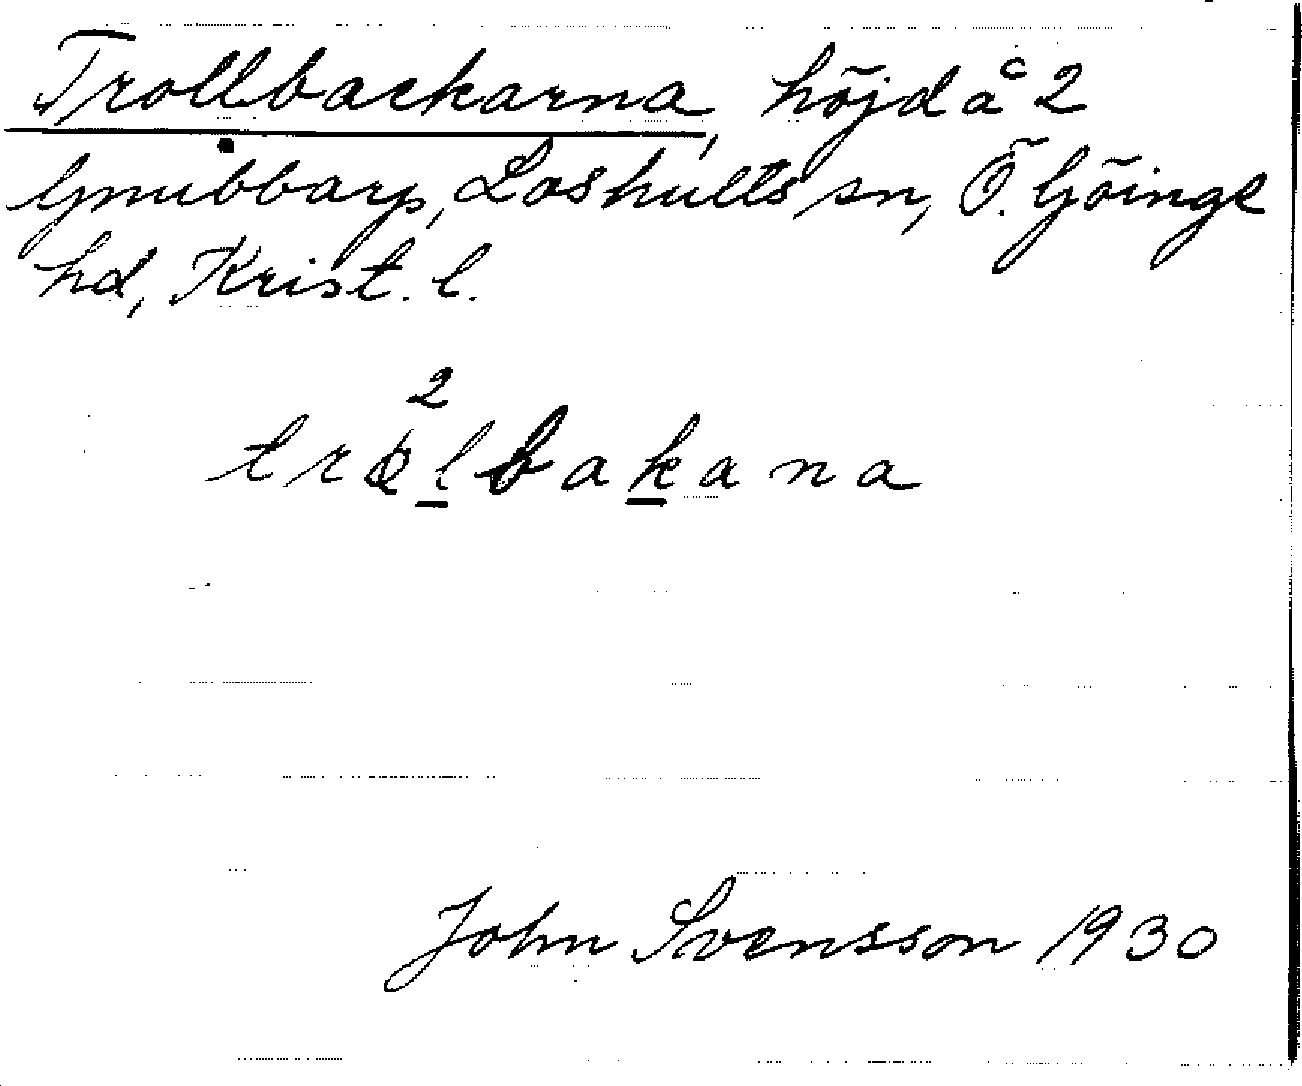 Trollbackarna, höjd å 2
Gnubbarp, Loshults sn, Ö. Göinge
hd, Krist. l.
2
trolbakana
John Svensson 1930